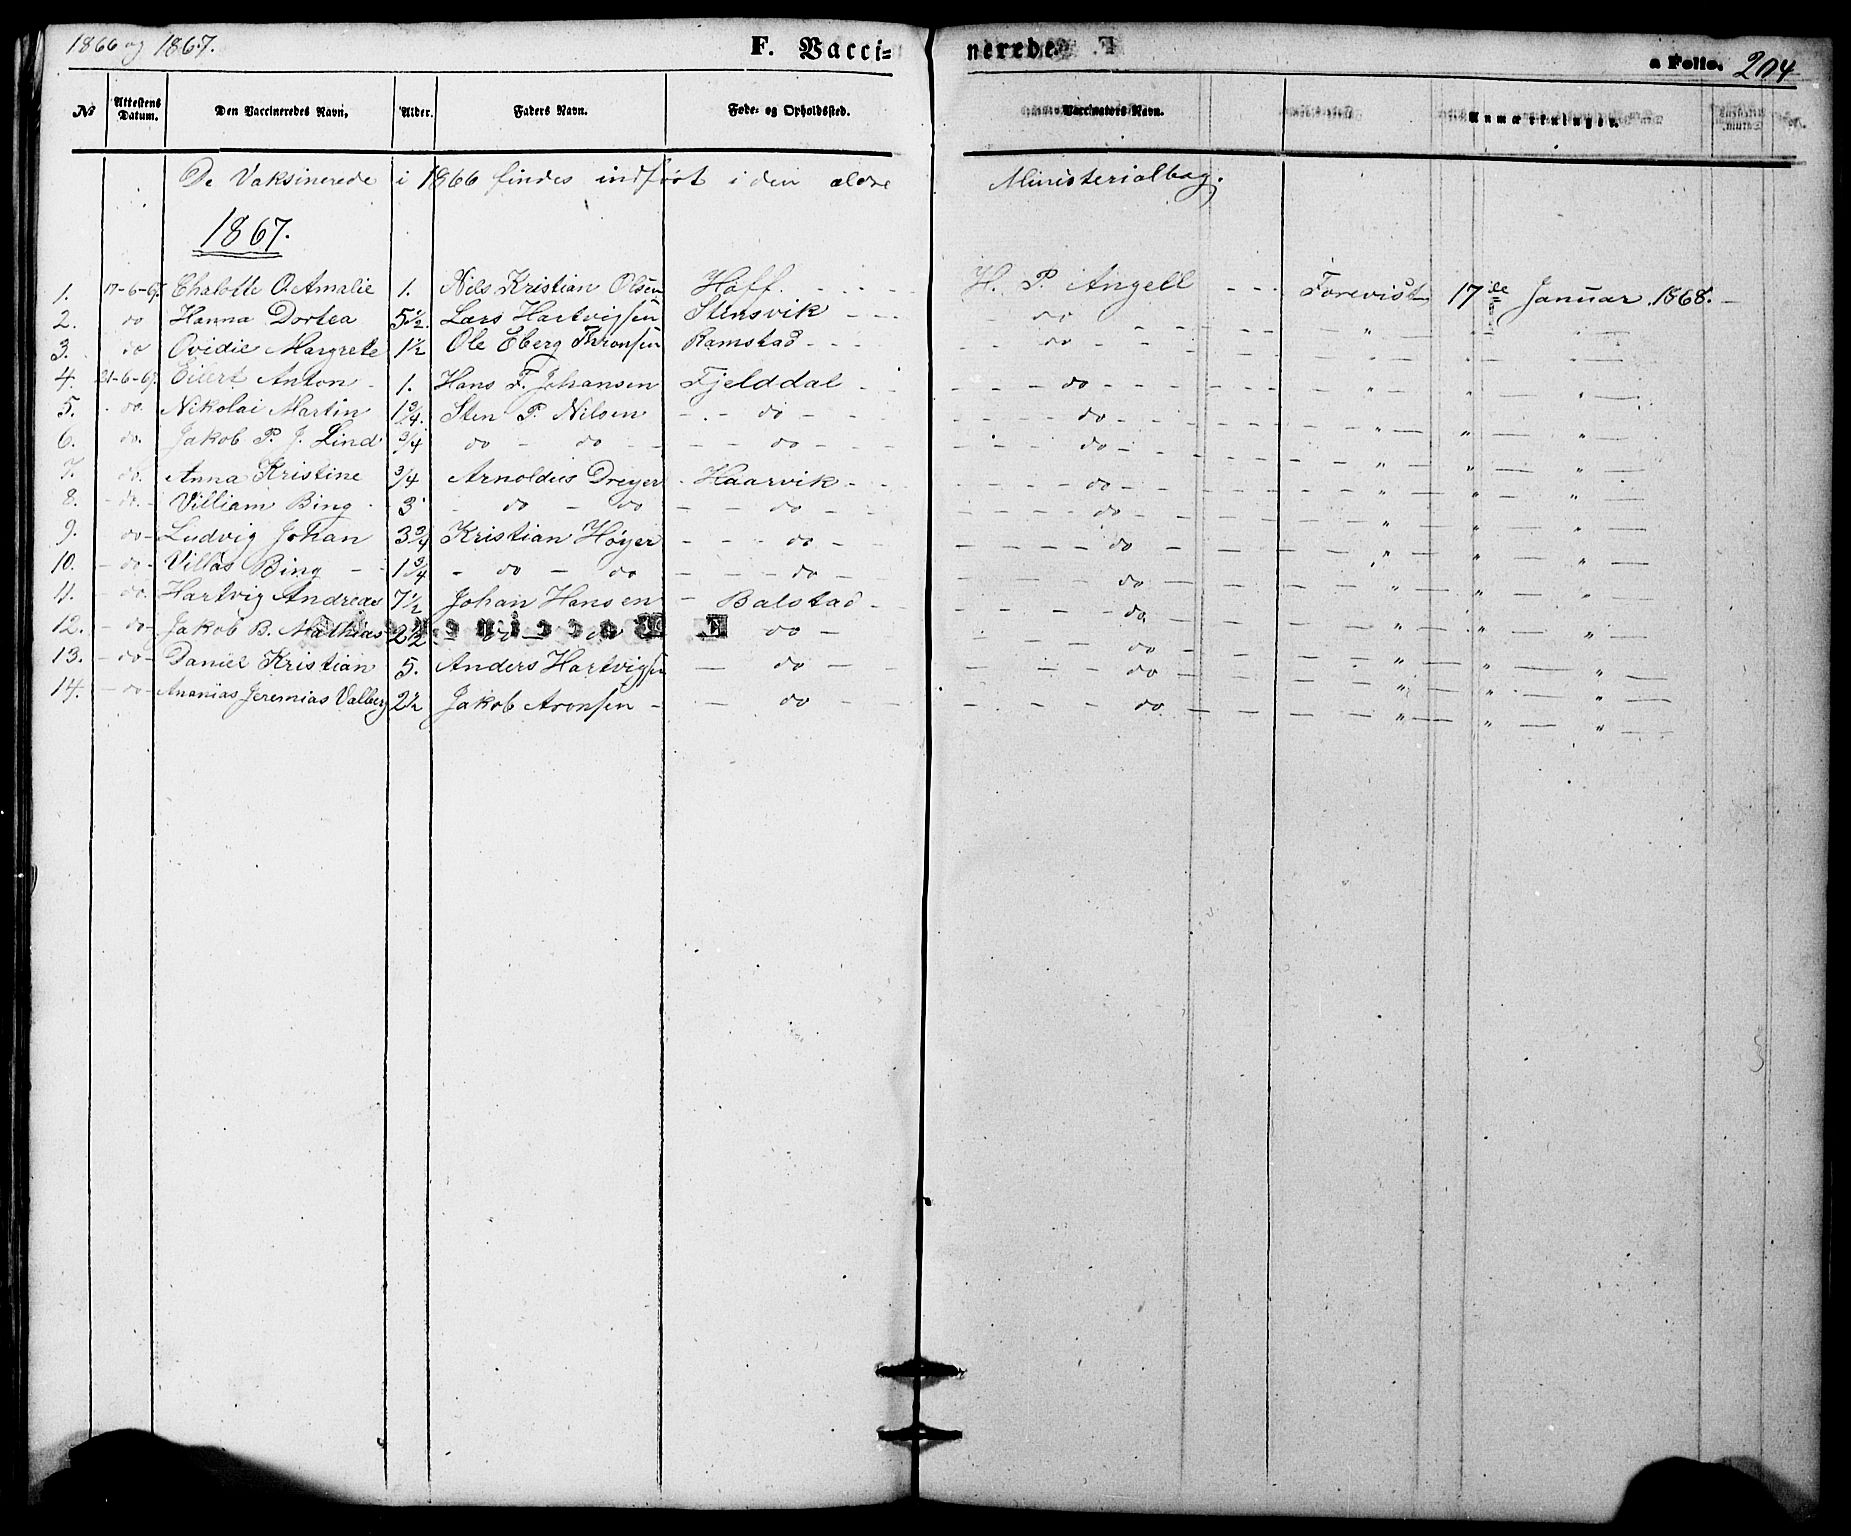 1866 og 1867.
F. Vacci= nerede. a Folio. 204
No Attestens Datum. Den Vaccineredes Navn, Alder. Faders Navn. Føde- og Opholdssted. Vaccinators Navn. Anmærkninger.
De Vaksinerede i 1866 findes indført i den ældre Ministerialbog.
1867.
1. 17-6-67. Chalotte O. Amalie 1. Nils Kristian Olsen Hoff. - - - - H. P. Angell - - - Forevist 17de Januar 1868. -
2. do Hanna Dortea 5 1/2. Lars Hartvigsen Stensvik - - - - - do - - - - - " - " - " -
3. do Ovidie Margrete 1 1/2 Ole Eberg Thronsen Ramstad - - - - - - do - - - - - " - " - " -
4. 21-6-67. Eilert Anton - 1. Hans F. Johansen Fjelddal - - - - - do - - - - - " - " - " -
5. - do. Nikolai Martin 1 3/4. Sten P. Nilsen - - do - - - - - do - - - - - " - " - " -
6. do. Jakob P. J. Lind 3/4 do - do - - - - do - - - - - do - - - - - " - " - " -
7. do. Anna Kristine 3/4 Arnoldus Dreyer - Haarvik - - - - - - do - - - - - " - " - " -
8. - do. - Villiam Bing - 3 - do - do - - do - - - - - do - - - - - " - " - " -
9. do - Ludvig Johan 3 3/4 Kristian Høyer - - - do - - - - - do - - - - - " - " - " -
10. - do - Villas Bing - - 1 3/4 - do - do - - - do - - - - - do - - - - - " - " - " -
11. - do - Hartvig Andreas 7 1/2 Johan Hansen - Balstad - - - - - do - - - - - " - " - " -
12. - do - Jakob B. Mathias 2 1/2 - do - do - - do - - - - - do - - - - - " - " - " -
13. - do - Daniel Kristian 5. Anders Hartvigsen - do - - - - - do - - - - - " - " - " -
14. - do - Ananias Jeremias Valberg 2 1/2 Jakob Aronsen - - do - - - - - do - - - - - " - " - " -